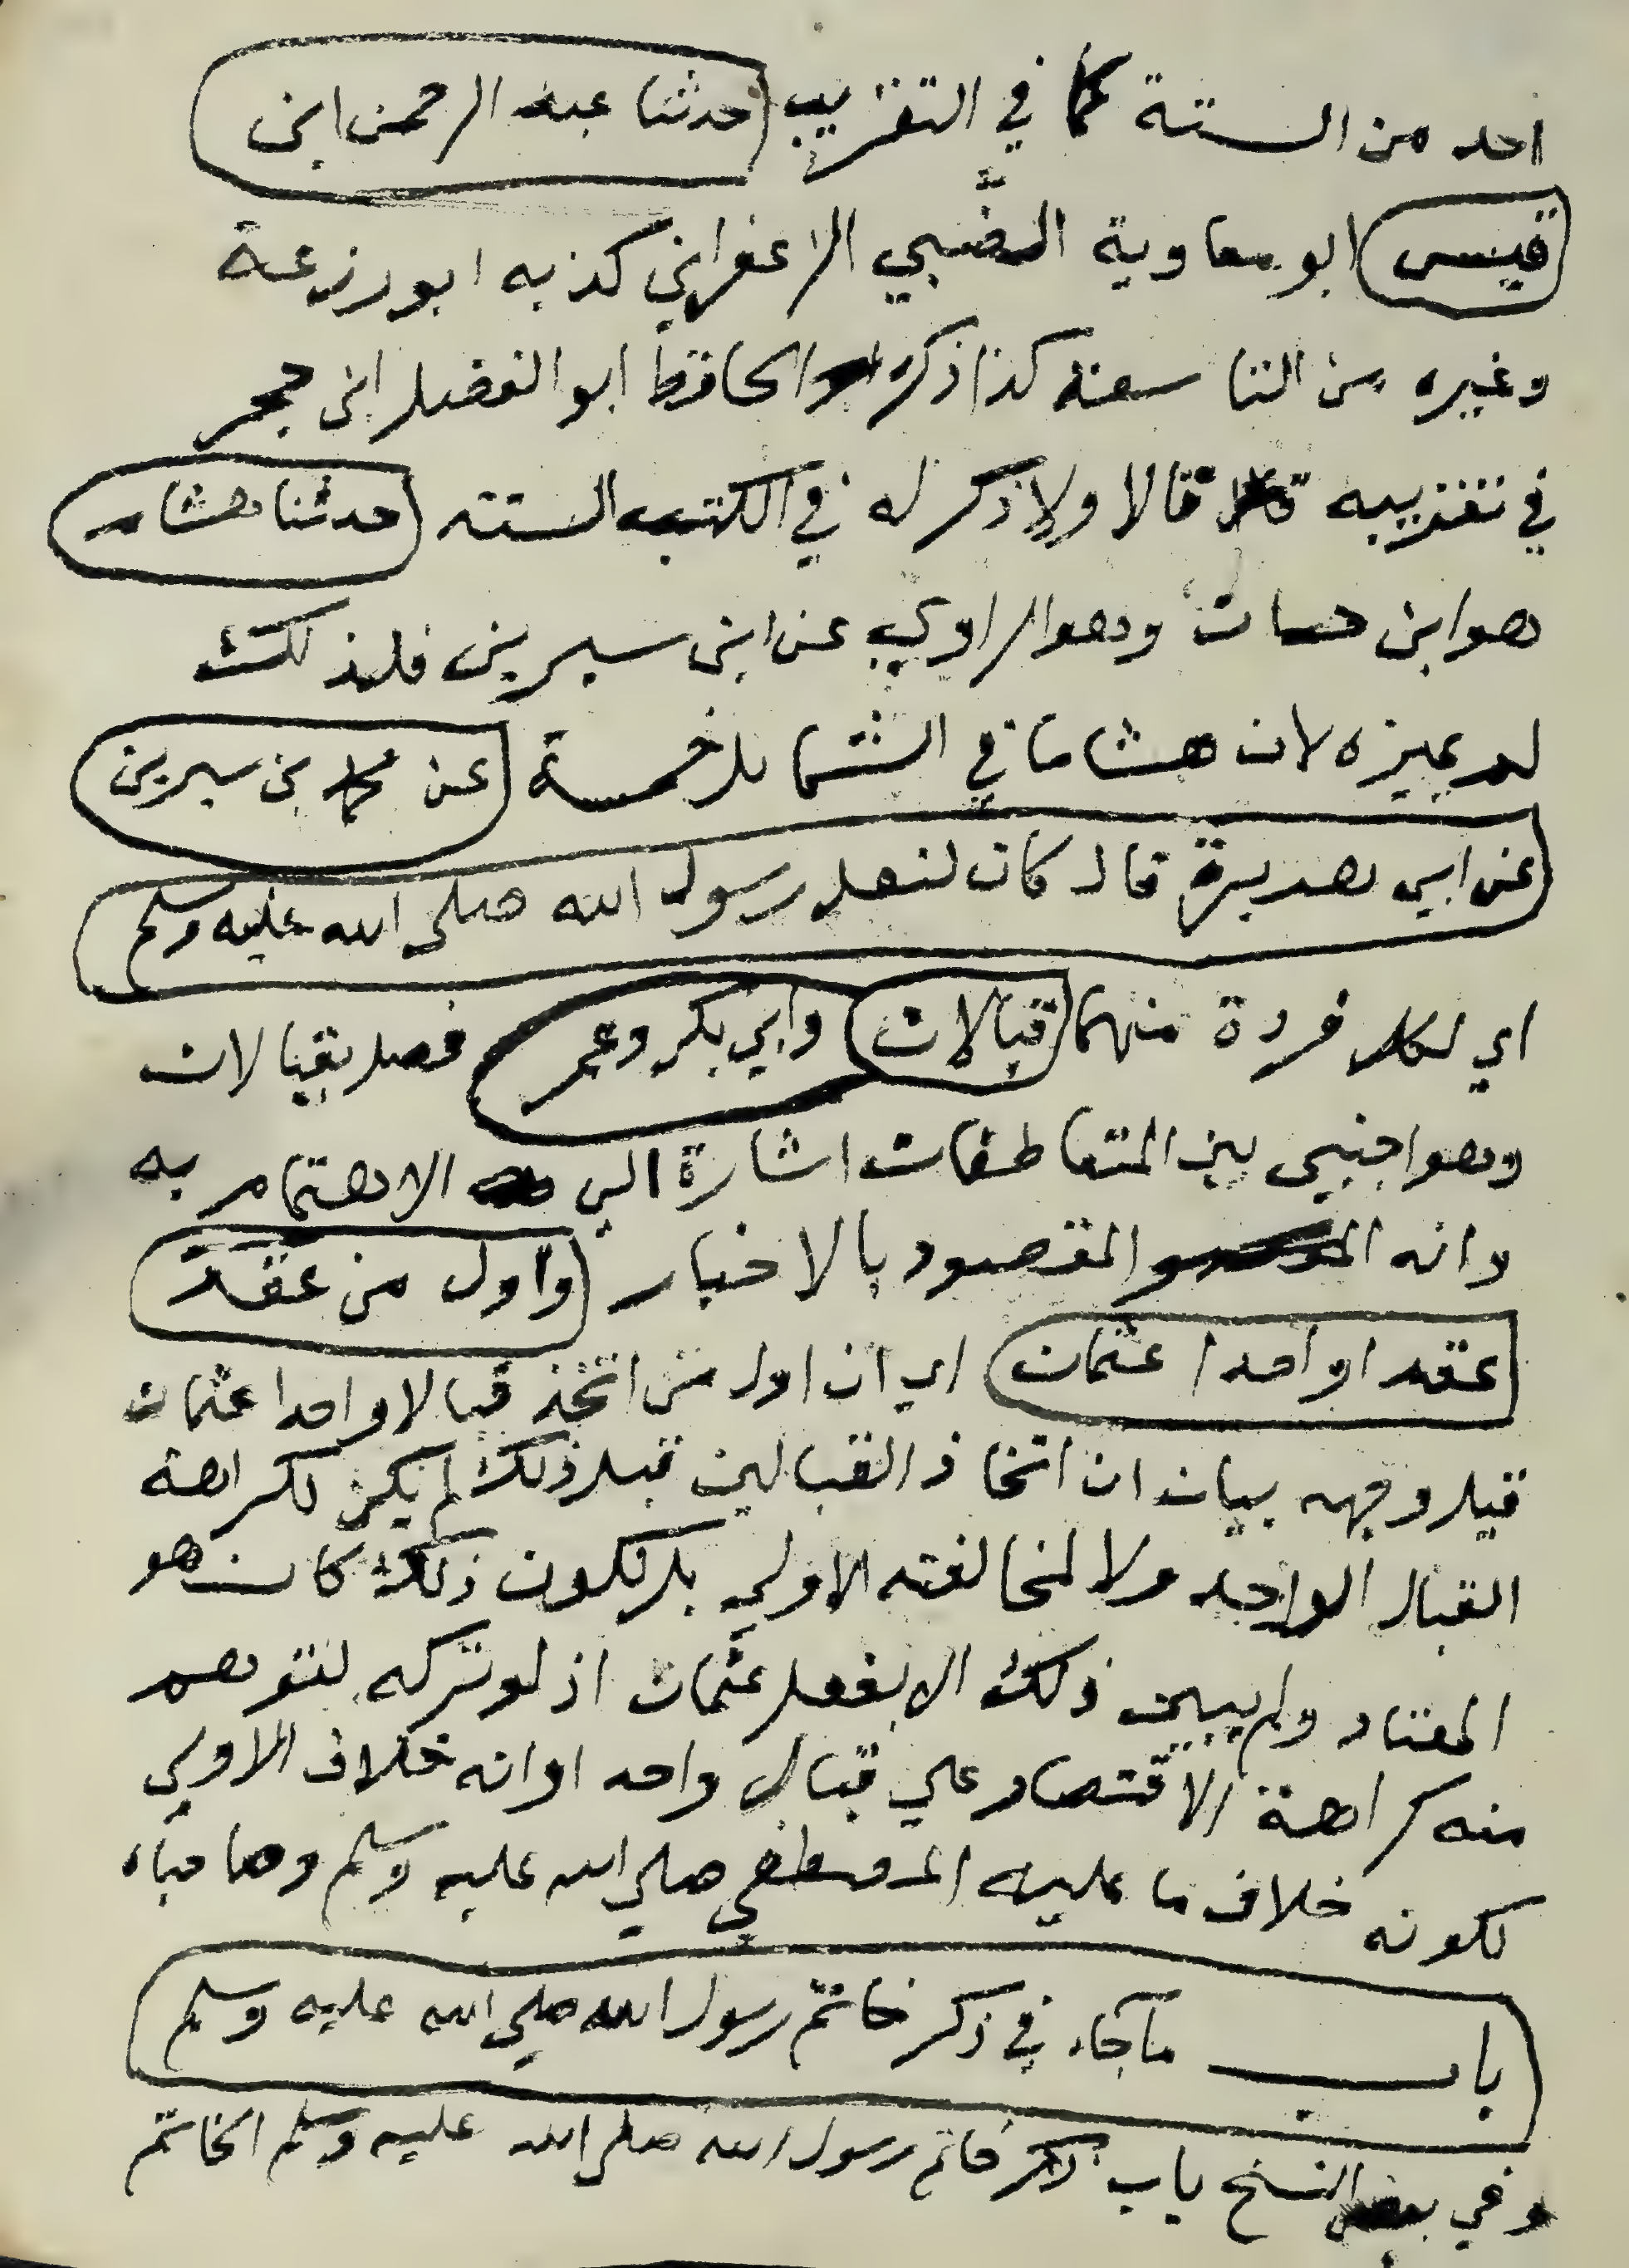 احد من الستة كما في التقريب حدثنا عبد الرحمن ابن
قيس ابو معاوية الضبي الزعفراني كذبه ابو زرعة
وغيره من التاسعة كذا ذكره الحافظ ابو الفضل ابن حجر
في تقريبه قالا ولا ذكر له في الكتب الستة حدثنا هشام
هو ابن حسان وهو الراوي عن ابن سيرين فلذلك
لم يميزه لان هشاما في الشمايل خمسة عن محمد بن سيرين
عن ابي هريرة قال كان لنعل رسول الله صلى الله عليه وسلم
اي لكل فردة منهما قبالان وابي بكر وعمر فصل بقبالان
وهو اجنبي بين المتعاطفات اشارة الي الاهتمام به
وانه المقصود بالاخبار واول من عقد
عقدا واحدا عثمان اي ان اول من اتخذ قبالا واحدا عثمان
قيل وجهه بيان ان اتخاذ القبالين قبل ذلك لم يكن لكراهة
القبال الواحد ولا لمخالفته الاولي بل لكون ذلك كان هو
المعتاد ولم يبين ذلك الا بفعل عثمان اذ لو تركه لتوهم
منه كراهة الاقتصار علي قبال واحد او انه خلاف الاولي
لكونه خلاف ما عليه المصطفي صلي الله عليه وسلم وصاحباه
باب ما جاء في ذكر خاتم رسول الله صلي الله عليه وسلم
وفي بعض النسخ باب ذكر خاتم رسول الله صلي الله عليه وسلم الخاتم